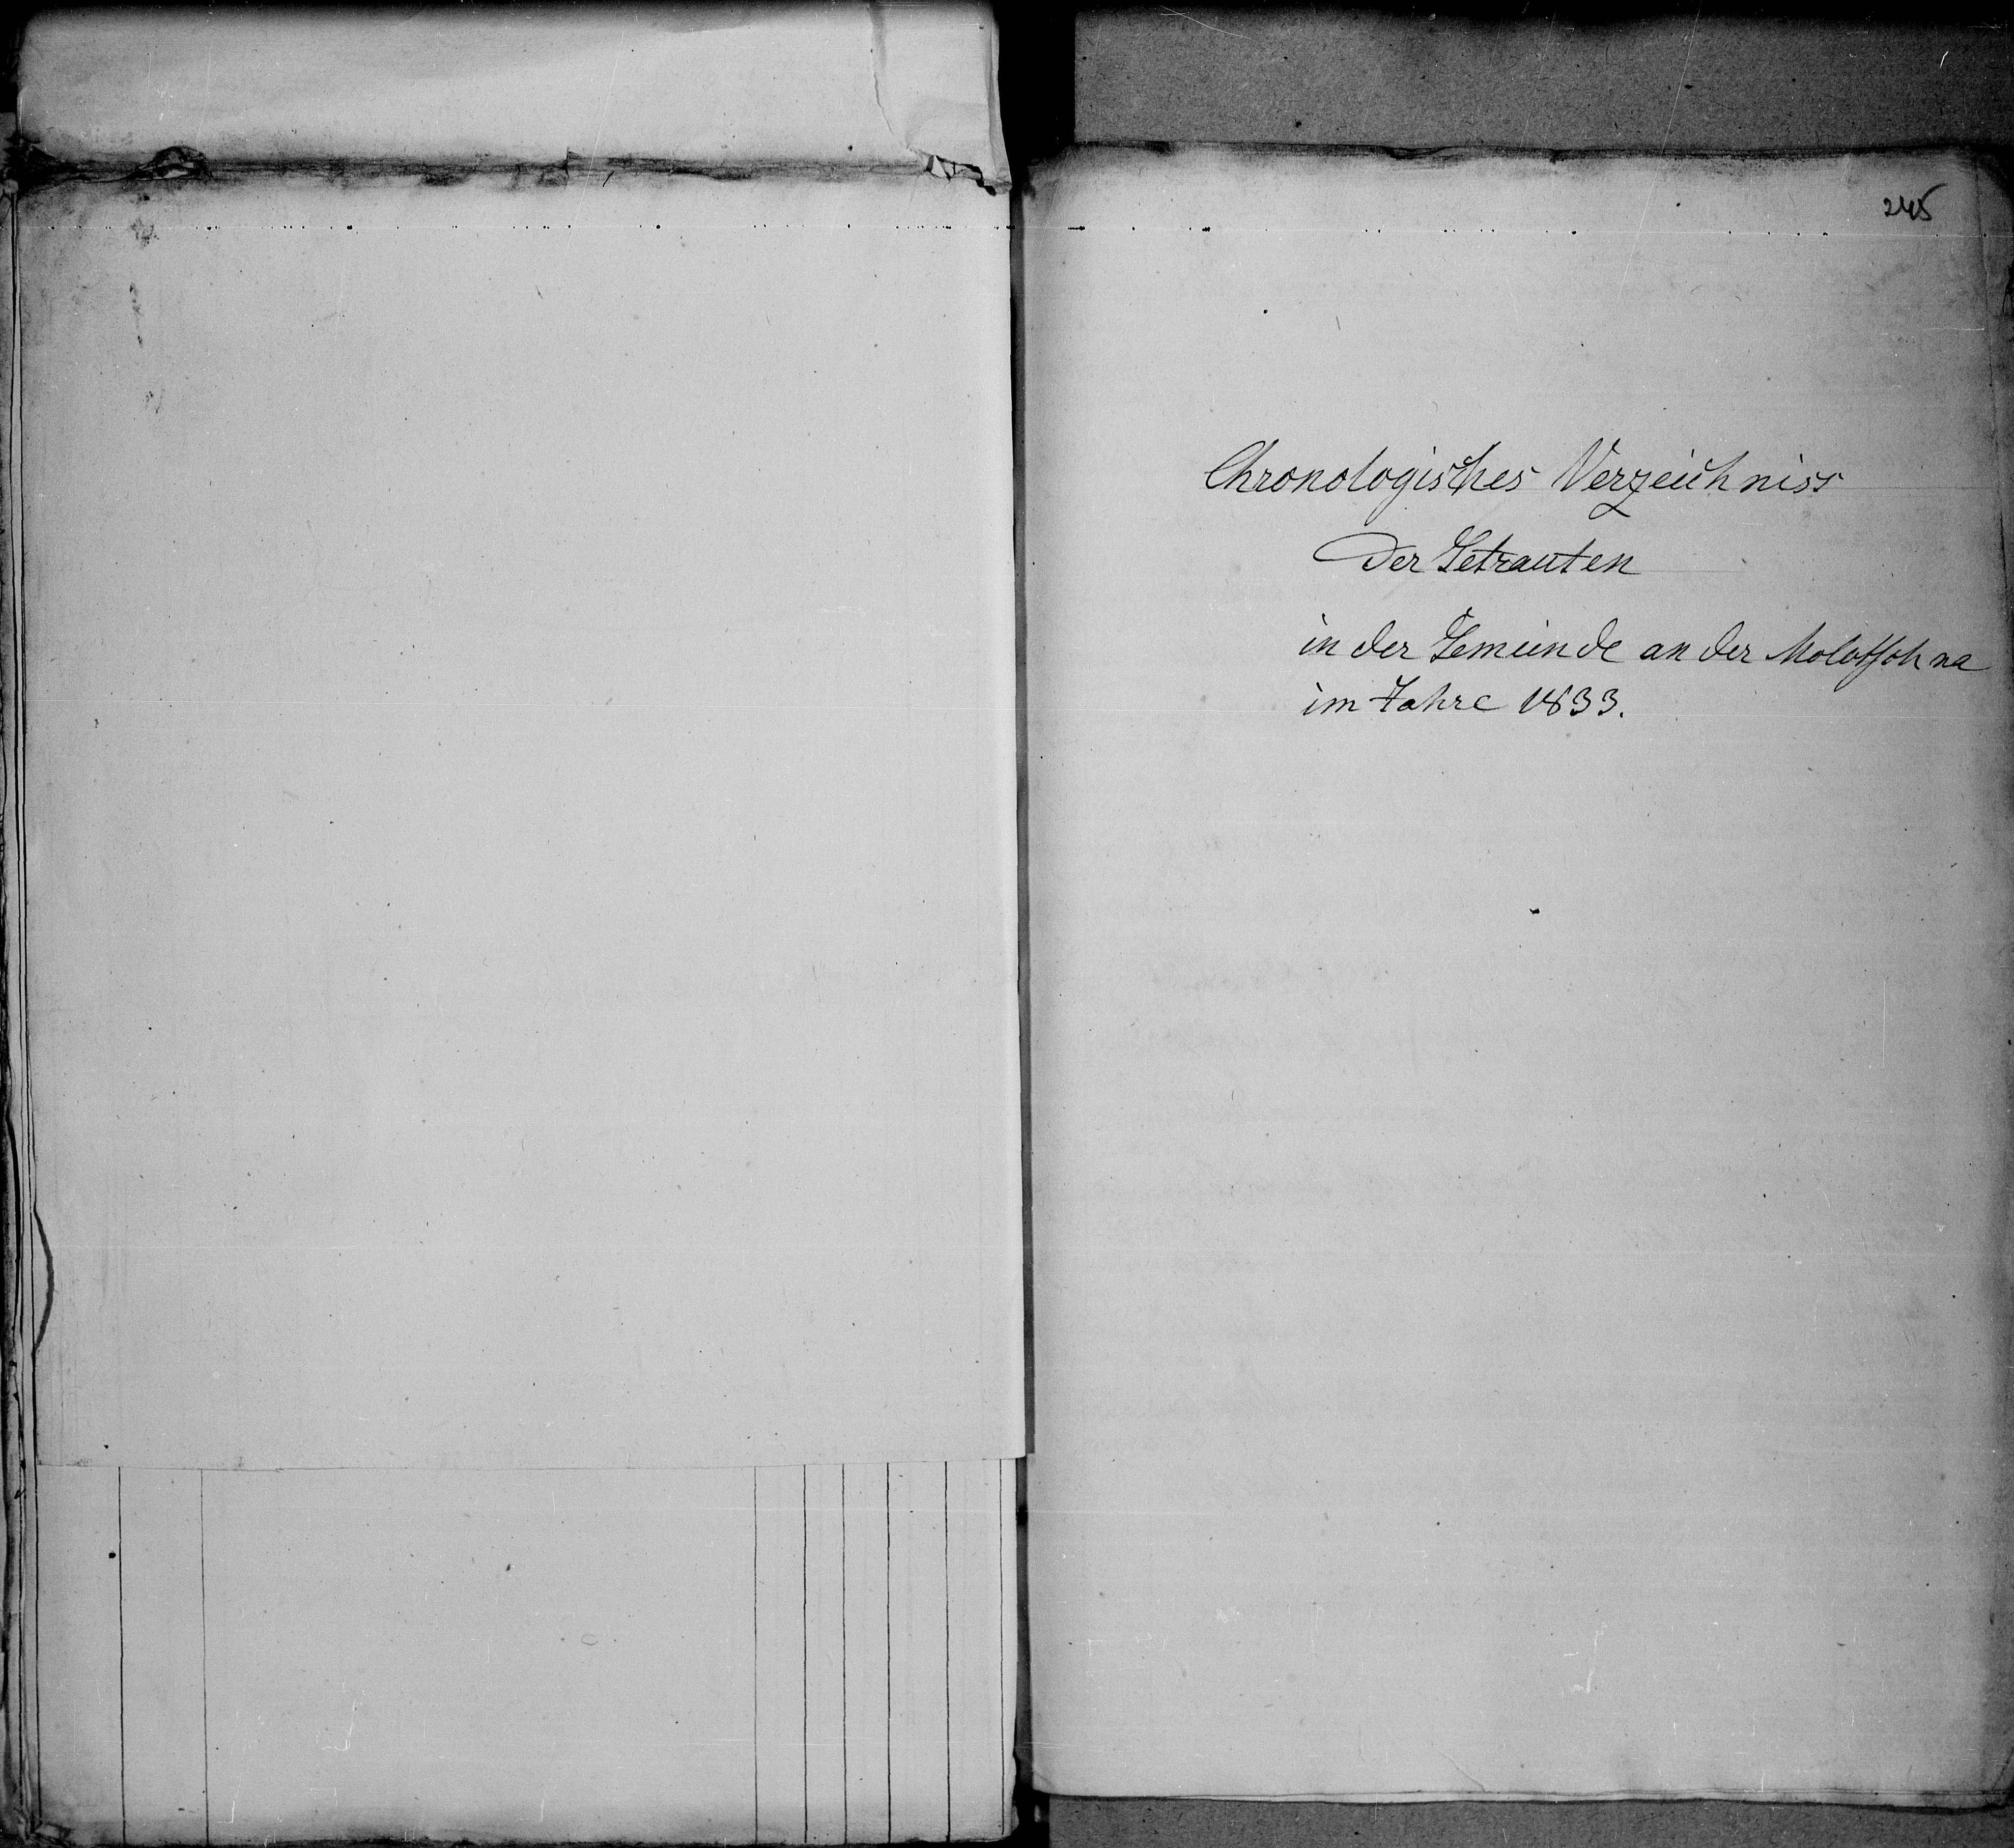 245
Chronologisches Verzeichniss
der Getrauten
in der Gemeinde an der Molotschna
im Jahre 1833.